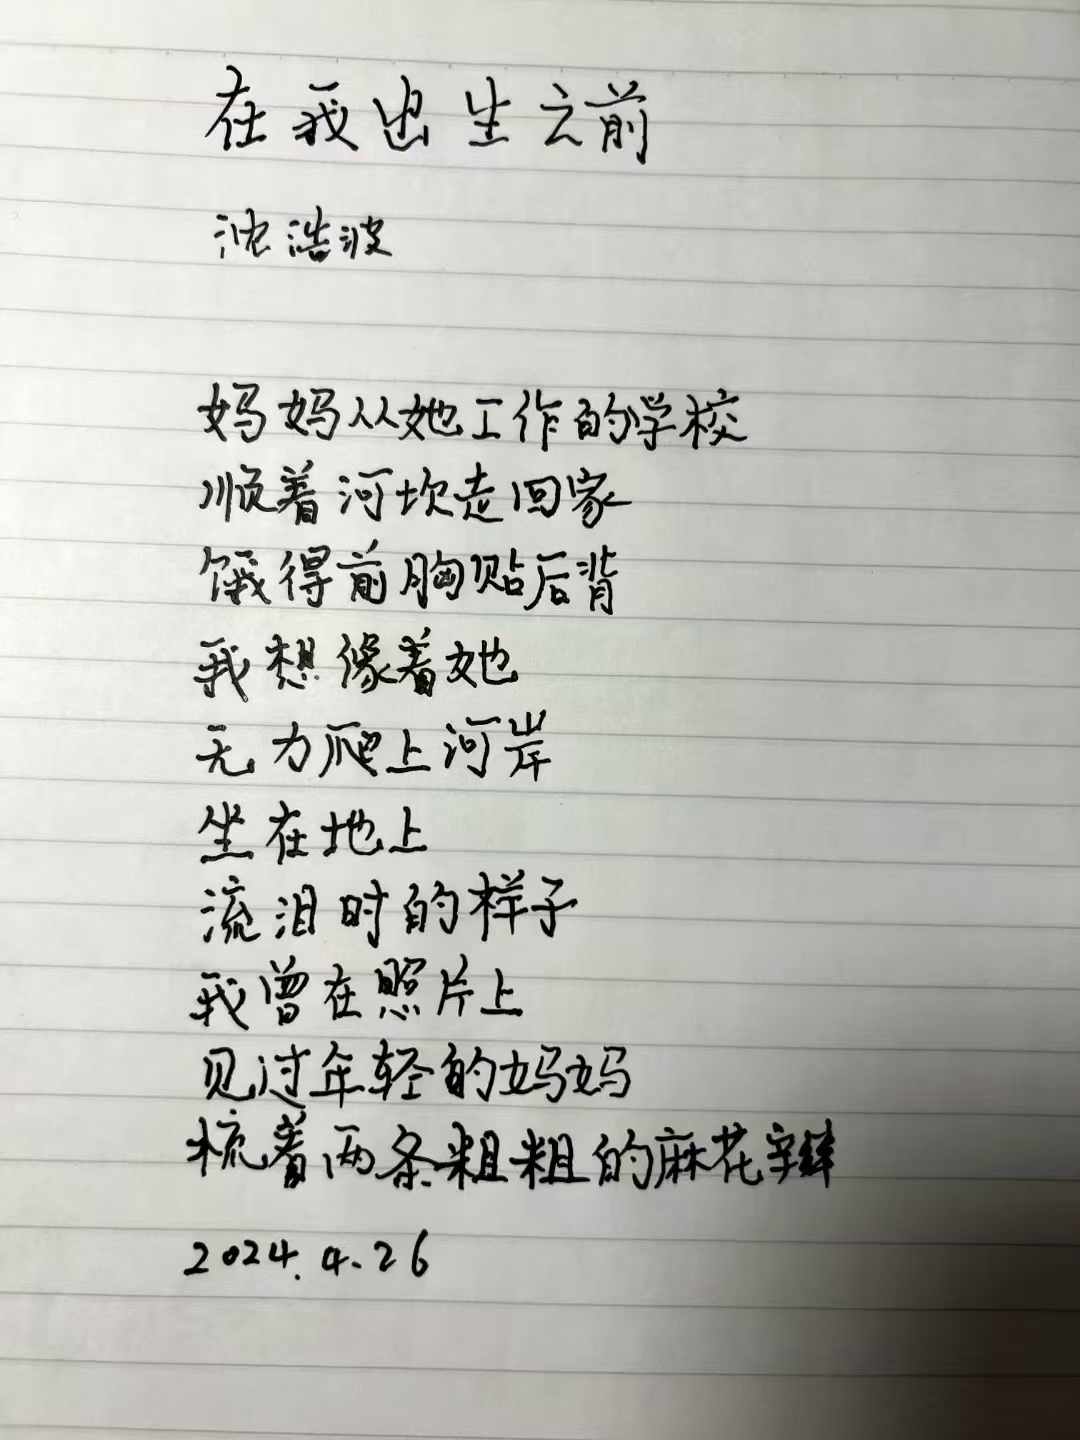 在我出生之前
沈浩波
妈妈从她工作的学校
顺着河坎走回家
饿得前胸贴后背
我想像着她
无力爬上河岸
坐在地上
流泪时的样子
我曾在照片上
见过年轻的妈妈
梳着两条粗粗的麻花辫
2024.4.26